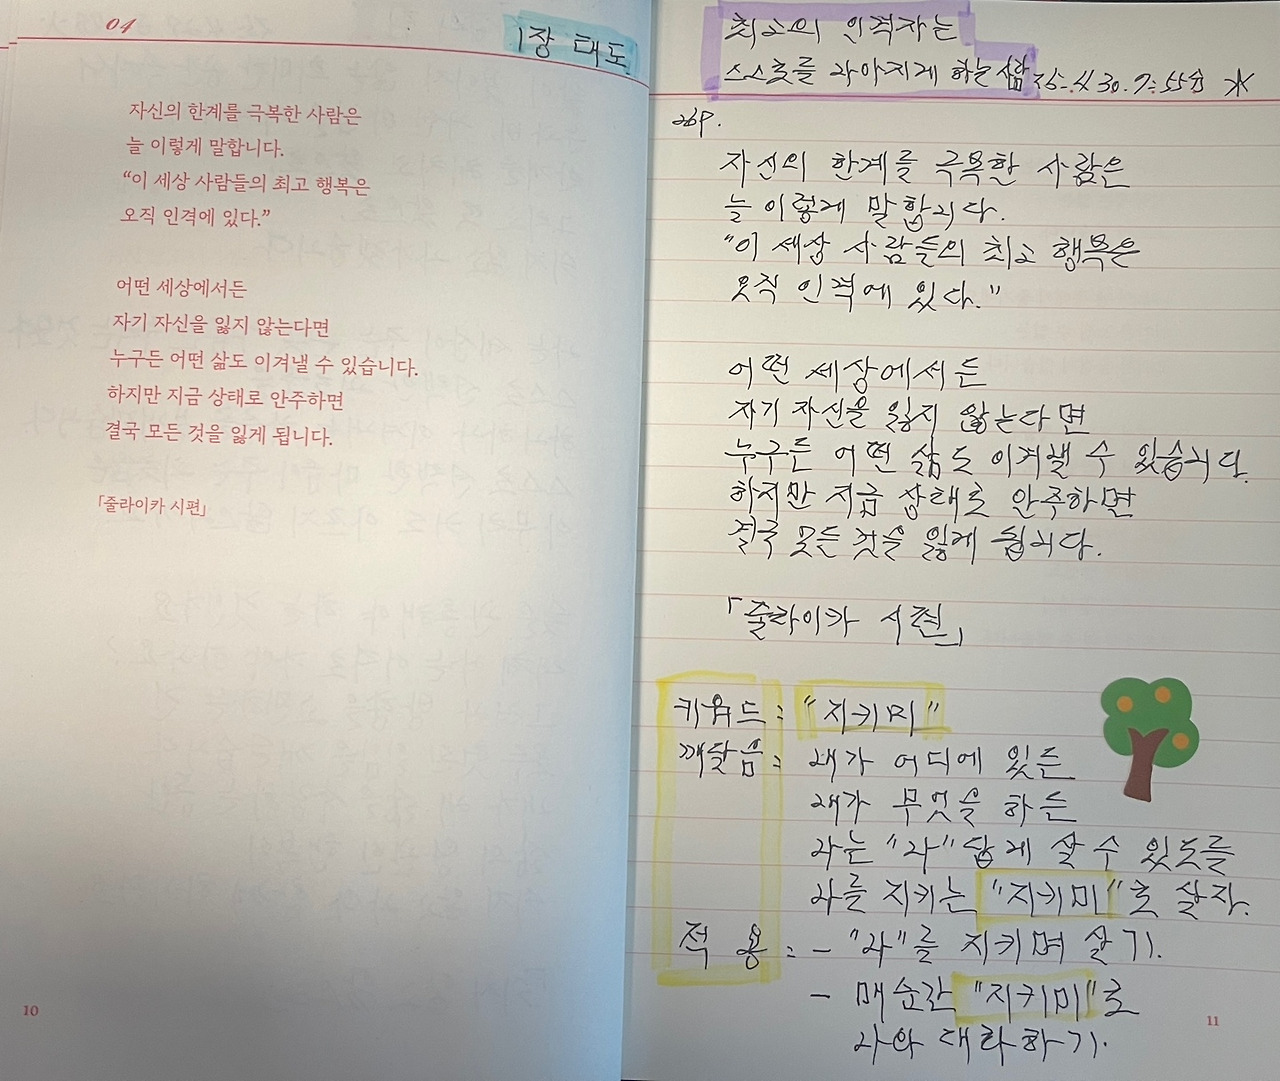 04
1장 태도
자신의 한계를 극복한 사람은
늘 이렇게 말합니다.
“이 세상 사람들의 최고 행복은
오직 인격에 있다.”
어떤 세상에서든
자기 자신을 잃지 않는다면
누구든 어떤 삶도 이겨낼 수 있습니다.
하지만 지금 상태로 안주하면
결국 모든 것을 잃게 됩니다.
「줄라이카 시편」
10
최고의 인격자는
스스로를 나아지게 하는 사람
25. 4. 30. 7:55분
26P.
자신의 한계를 극복한 사람은
늘 이렇게 말합니다.
"이 세상 사람들의 최고 행복은
오직 인격에 있다."
어떤 세상에서든
자기 자신을 잃지 않는다면
누구든 어떤 삶도 이겨낼 수 있습니다.
하지만 지금 상태로 안주하면
결국 모든 것을 잃게 됩니다.
「줄라이카 시편」
키워드 : "지키미"
깨달음 : 내가 어디에 있든
내가 무엇을 하든
나는 "나"답게 살 수 있도록
나를 지키는 "지키미"로 살자.
적용 : - "나"를 지키며 살기.
- 매순간 "지키미"로
나와 대화하기.
11